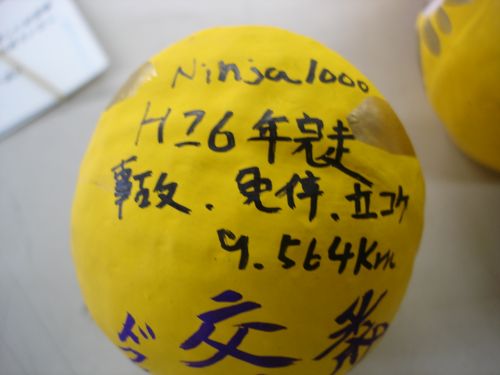 Ninja1000
H26年完走
事故、免停、立コケ
9.564Km
交